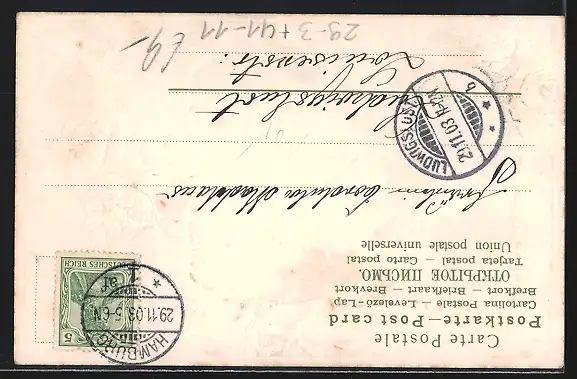 Carte Postale
Postkarte — Post card
Cartolina Postale — Levelező-Lap
Brefkort — Briefkaart — Brevkort
ОТКРЫТОЕ ПИСЬМО.
Tarjeta postal — Carto postal
Union postale universelle
DEUTSCHES REICH
5
HAMBURG
29.11.03. 5-6 N
1
Fräulein Cordula
Ludwigslust
Louisenstr:
LUDWIGSLUST
29.11.03
29-3 + 41-11